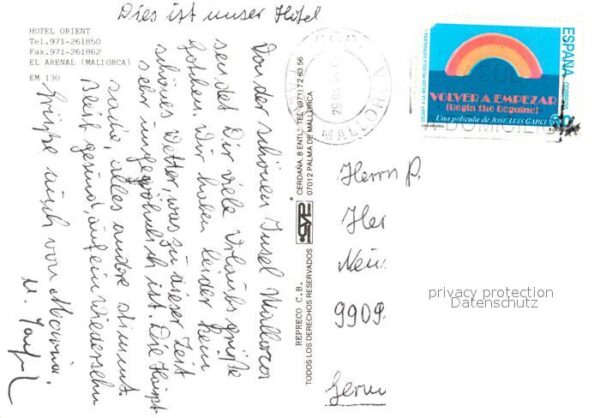 Dies ist unser Hotel
HOTEL ORIENT
Tel.971-261850
Fax.971-261862
EL ARENAL (MALLORCA)
EM 130
Von der schönen Insel Mallorca
sendet Dir viele Urlaubsgrüße
Wir haben leider kein
schönes Wetter, was zu dieser Zeit
sehr ungewöhnlich ist. Die Haupt-
sache, alles andere stimmt.
Bleib gesund, auf ein Wiedersehn
Grüße auch von Maria
CERDAÑA, 8 ENTLº TEL. (971) 72 63 56
07012 PALMA DE MALLORCA
REPRECO C.B.
TODOS LOS DERECHOS RESERVADOS
MALLORCA
ESPAÑA
CORREOS
VOLVER A EMPEZAR
(Begin the Beguine)
Una película de JOSE LUIS GARCI
DOMICILI
Herrn P.
Her
Neu
9909
Germ
privacy protection
Datenschutz